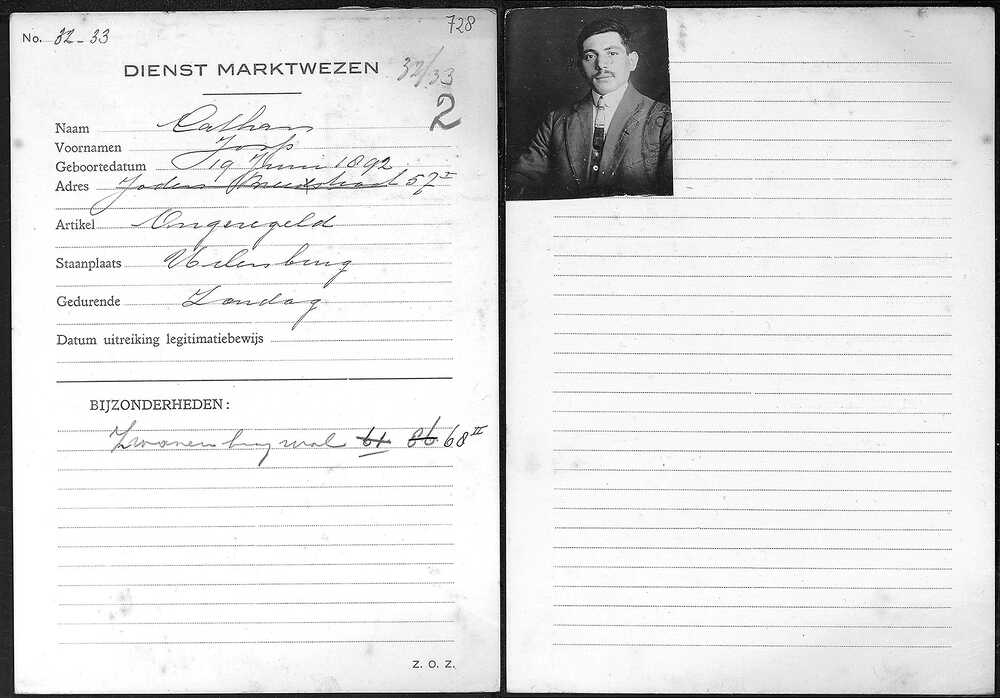 728
No. 32-33
DIENST MARKTWEZEN
32/33
2
Naam Cathan
Voornamen Joop
Geboortedatum 19 Juni 1892
Adres Joden Breestraat 57 I
Artikel Ongeregeld
Staanplaats Uilenburg
Gedurende Zondag
Datum uitreiking legitimatiebewijs
BIJZONDERHEDEN:
Zwanenburgwal 61 86 68 II
Z. O. Z.